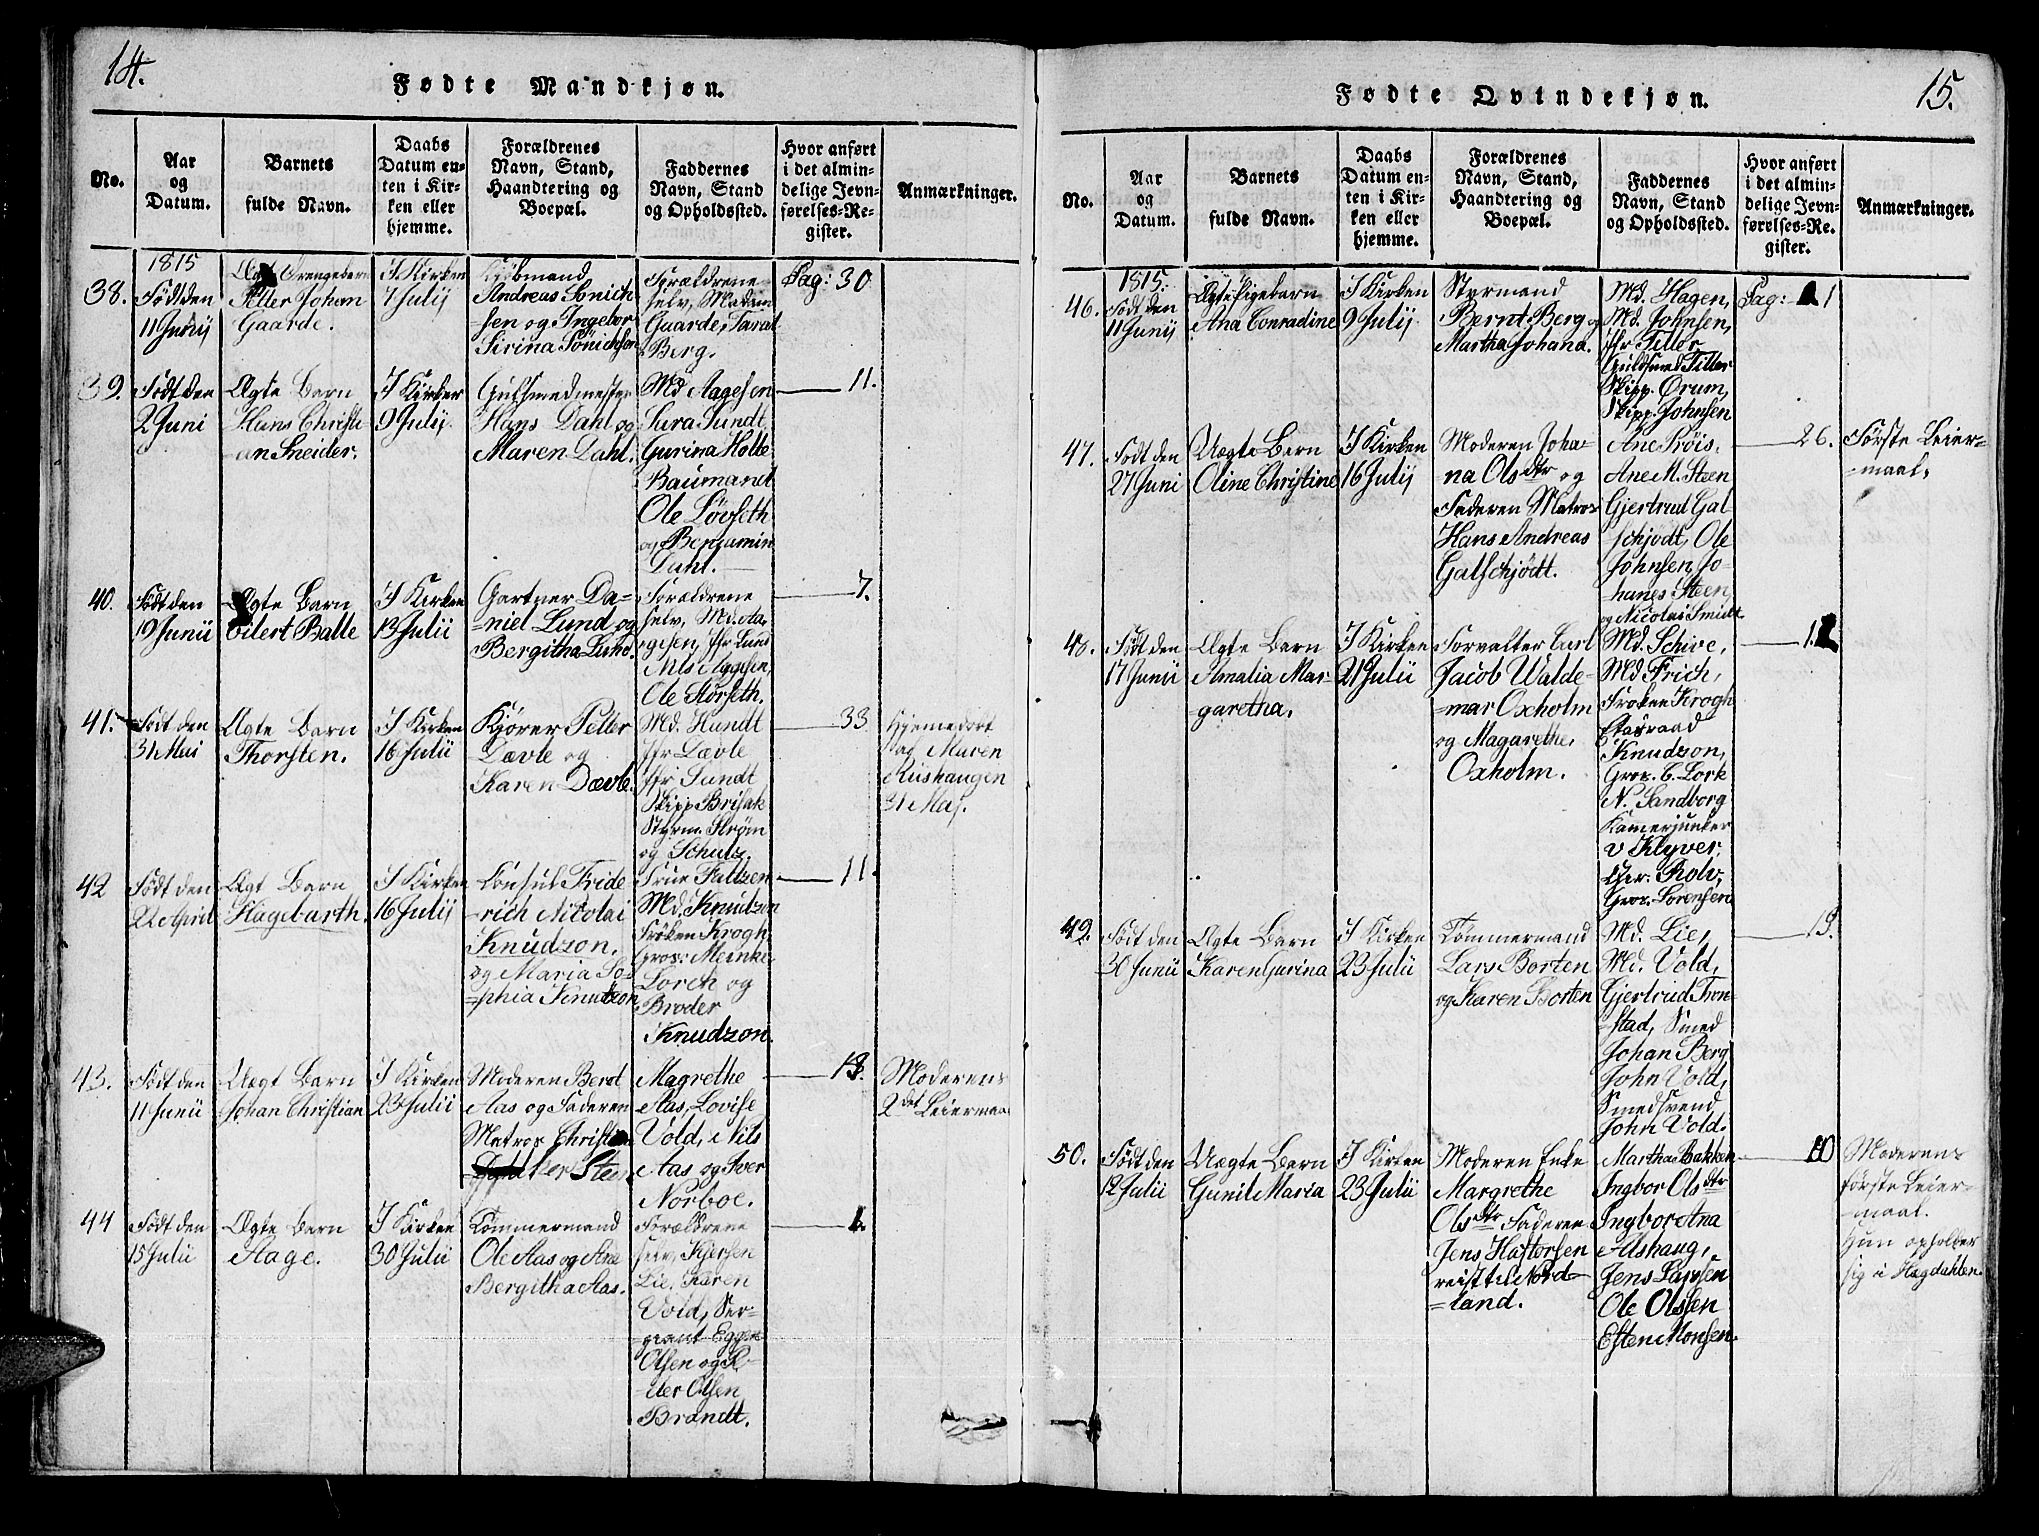 14.
Fødte Mandkjøn.
No.
Aar
og
Datum.
Barnets
fulde Navn.
Daabs
Datum en-
ten i Kir-
ken eller
hjemme.
Forældrenes
Navn, Stand,
Haandtering og
Boepæl.
Faddernes
Navn, Stand
og Opholdssted.
Hvor anført
i det almin-
delige Jevn-
førelses-Re-
gister.
Anmærkninger.
38.
1815
Født den
11 Junij
Ægt Drengebarn
Petter Johan
Gaarde.
I Kirken
7 Julij
Kjøbmand
Andreas Sønich
sen og Ingebor
Sirina Sønichsen
Forældrene
selv, Madam
Gaarde, Taral
Berg.
Pag: 30
39.
Født den
2 Juni
Ægte Barn
Hans Christi
an Sneider.
I Kirken
9 Julij.
Gulsmedmester
Hans Dahl og
Maren Dahl.
Md Aagesen
Sara Sundt,
Gurina Holte
Baumandt
Ole Løvseth
og Benjamin
Dahl.
11.
40.
Født den
19 Junii
Ægte Barn
Eilert Balle
I Kirken
13 Julii
Gartner Da-
niel Lund og
Bergitha Lund.
Forældrene
selv, Md. Aa-
gesen, Jfr Lund
Nils Aggesen,
Ole Størseth.
7.
41.
Født den
31 Mai
Ægte Barn
Thorsten.
I Kirken
16 Julii
Kjører Petter
Dævle og
Karen Dævle.
Md. Hundt
Jfr Dævle
Jfr Sundt
Skipp Brisak
Styrm. Strøm
og Schulz.
33
Hjemedøbt
af Maren
Rishaugen
31 Mai.
42
Født den
22 April
Ægt Barn
Hagebarth.
I Kirken
16 Julij
Consul Fride
rich Nicolai
Knudzon,
og Maria So-
phia Knutzon
Frue Faltzen
Md. Knudzon
Frøken Krogh
Gros: Meinke
Lorck og
Broder
Knudzon.
11.
43.
Født den
11 Junii
Uægt Barn
Johan Christian
I Kirken
23 Julii
Moderen Berot
Aas og Faderen
Matros Christian
Steen
Magrethe
Aas, Lovise
Vold, Nils
Aas og Iver
Norboe.
13.
Moderens
2det Leiermaal
44
Født den
15 Julii
Ægte Barn
Aage.
I Kirken
30 Julii
Tømmermand
Ole Aas og Ane
Bergitha Aas.
Forældrene
selv, Kjersten
Lie, Karen
Vold, Ser-
giant Eggen
Olsen og P-
tter Olsen
Brandt.
1.
15.
Fødte Qvindekjøn.
No.
Aar
og
Datum.
Barnets
fulde Navn.
Daabs
Datum en-
ten i Kir-
ken eller
hjemme.
Forældrenes
Navn, Stand,
Haandtering og
Boepæl.
Faddernes
Navn, Stand
og Opholdssted.
Hvor anført
i det almin-
delige Jevn-
førelses-Re-
gister.
Anmærkninger.
46.
1815.
Født den
11 Junij
Ægte Pigebarn
Ana Conradine
I Kirken
9 Julij.
Styrmand
Bernt Berg og
Martha Johana.
Md. Hagen,
Md. Johnsen,
Jfr Tiller
Guldsmed Tiller
Skipp. Ørum,
Skipp. Johnsen
Pag: 1
47.
Født den
27 Juni
Uægte Barn
Oline Christine
I Kirken
16 Julij
Moderen Joha-
na Olsdtr og
Faderen Matros
Hans Andreas
Galschjødt.
Ane Prøis,
Ane M. Steen
Gjertrud Gal
schjødt, Ole
Johnsen, Jo-
hanes Steen,
og Nicolai Smidt
26.
Første Leier-
maal.
48.
Født den
17 Junii
Ægte Barn
Amalia Mar-
garetha.
I Kirken
21 Julii
Forvalter Carl
Jacob Walde-
mar Oxholm
og Magarethe
Oxholm.
Md. Schive,
Md Frich,
Frøken Krogh
Etatsraad
Knudzon,
Gros. C. Lork
N. Sandborg
Kammerjunker
v Klyver,
Gros. Sørensen
49.
Født den
30 Junii
Ægte Barn
Karen Gurina
I Kirken
23 Julii
Tømmermand
Lars Borten
og Karen Borten
Md. Lie,
Md. Vold,
Gjertrud Tron-
stad, Smed
Johan Berg
John Vold,
Smedsvend
John Vold.
13.
50.
Født den
12 Julii
Uægte Barn
Gunil Maria
I Kirken
23 Julii
Moderen Enke
Margrethe
Olsdtr Faderen
Jens Hastorsen
reist til Nord-
land.
Martha Bakken
Ingbor Olsdtr
Ingbor Ana
Alshaug,
Jens Larsen
Ole Olsen
Esten Monsen.
10
Moderens
første Leier-
maal.
Hun opholder
sig i Hægdahlen.